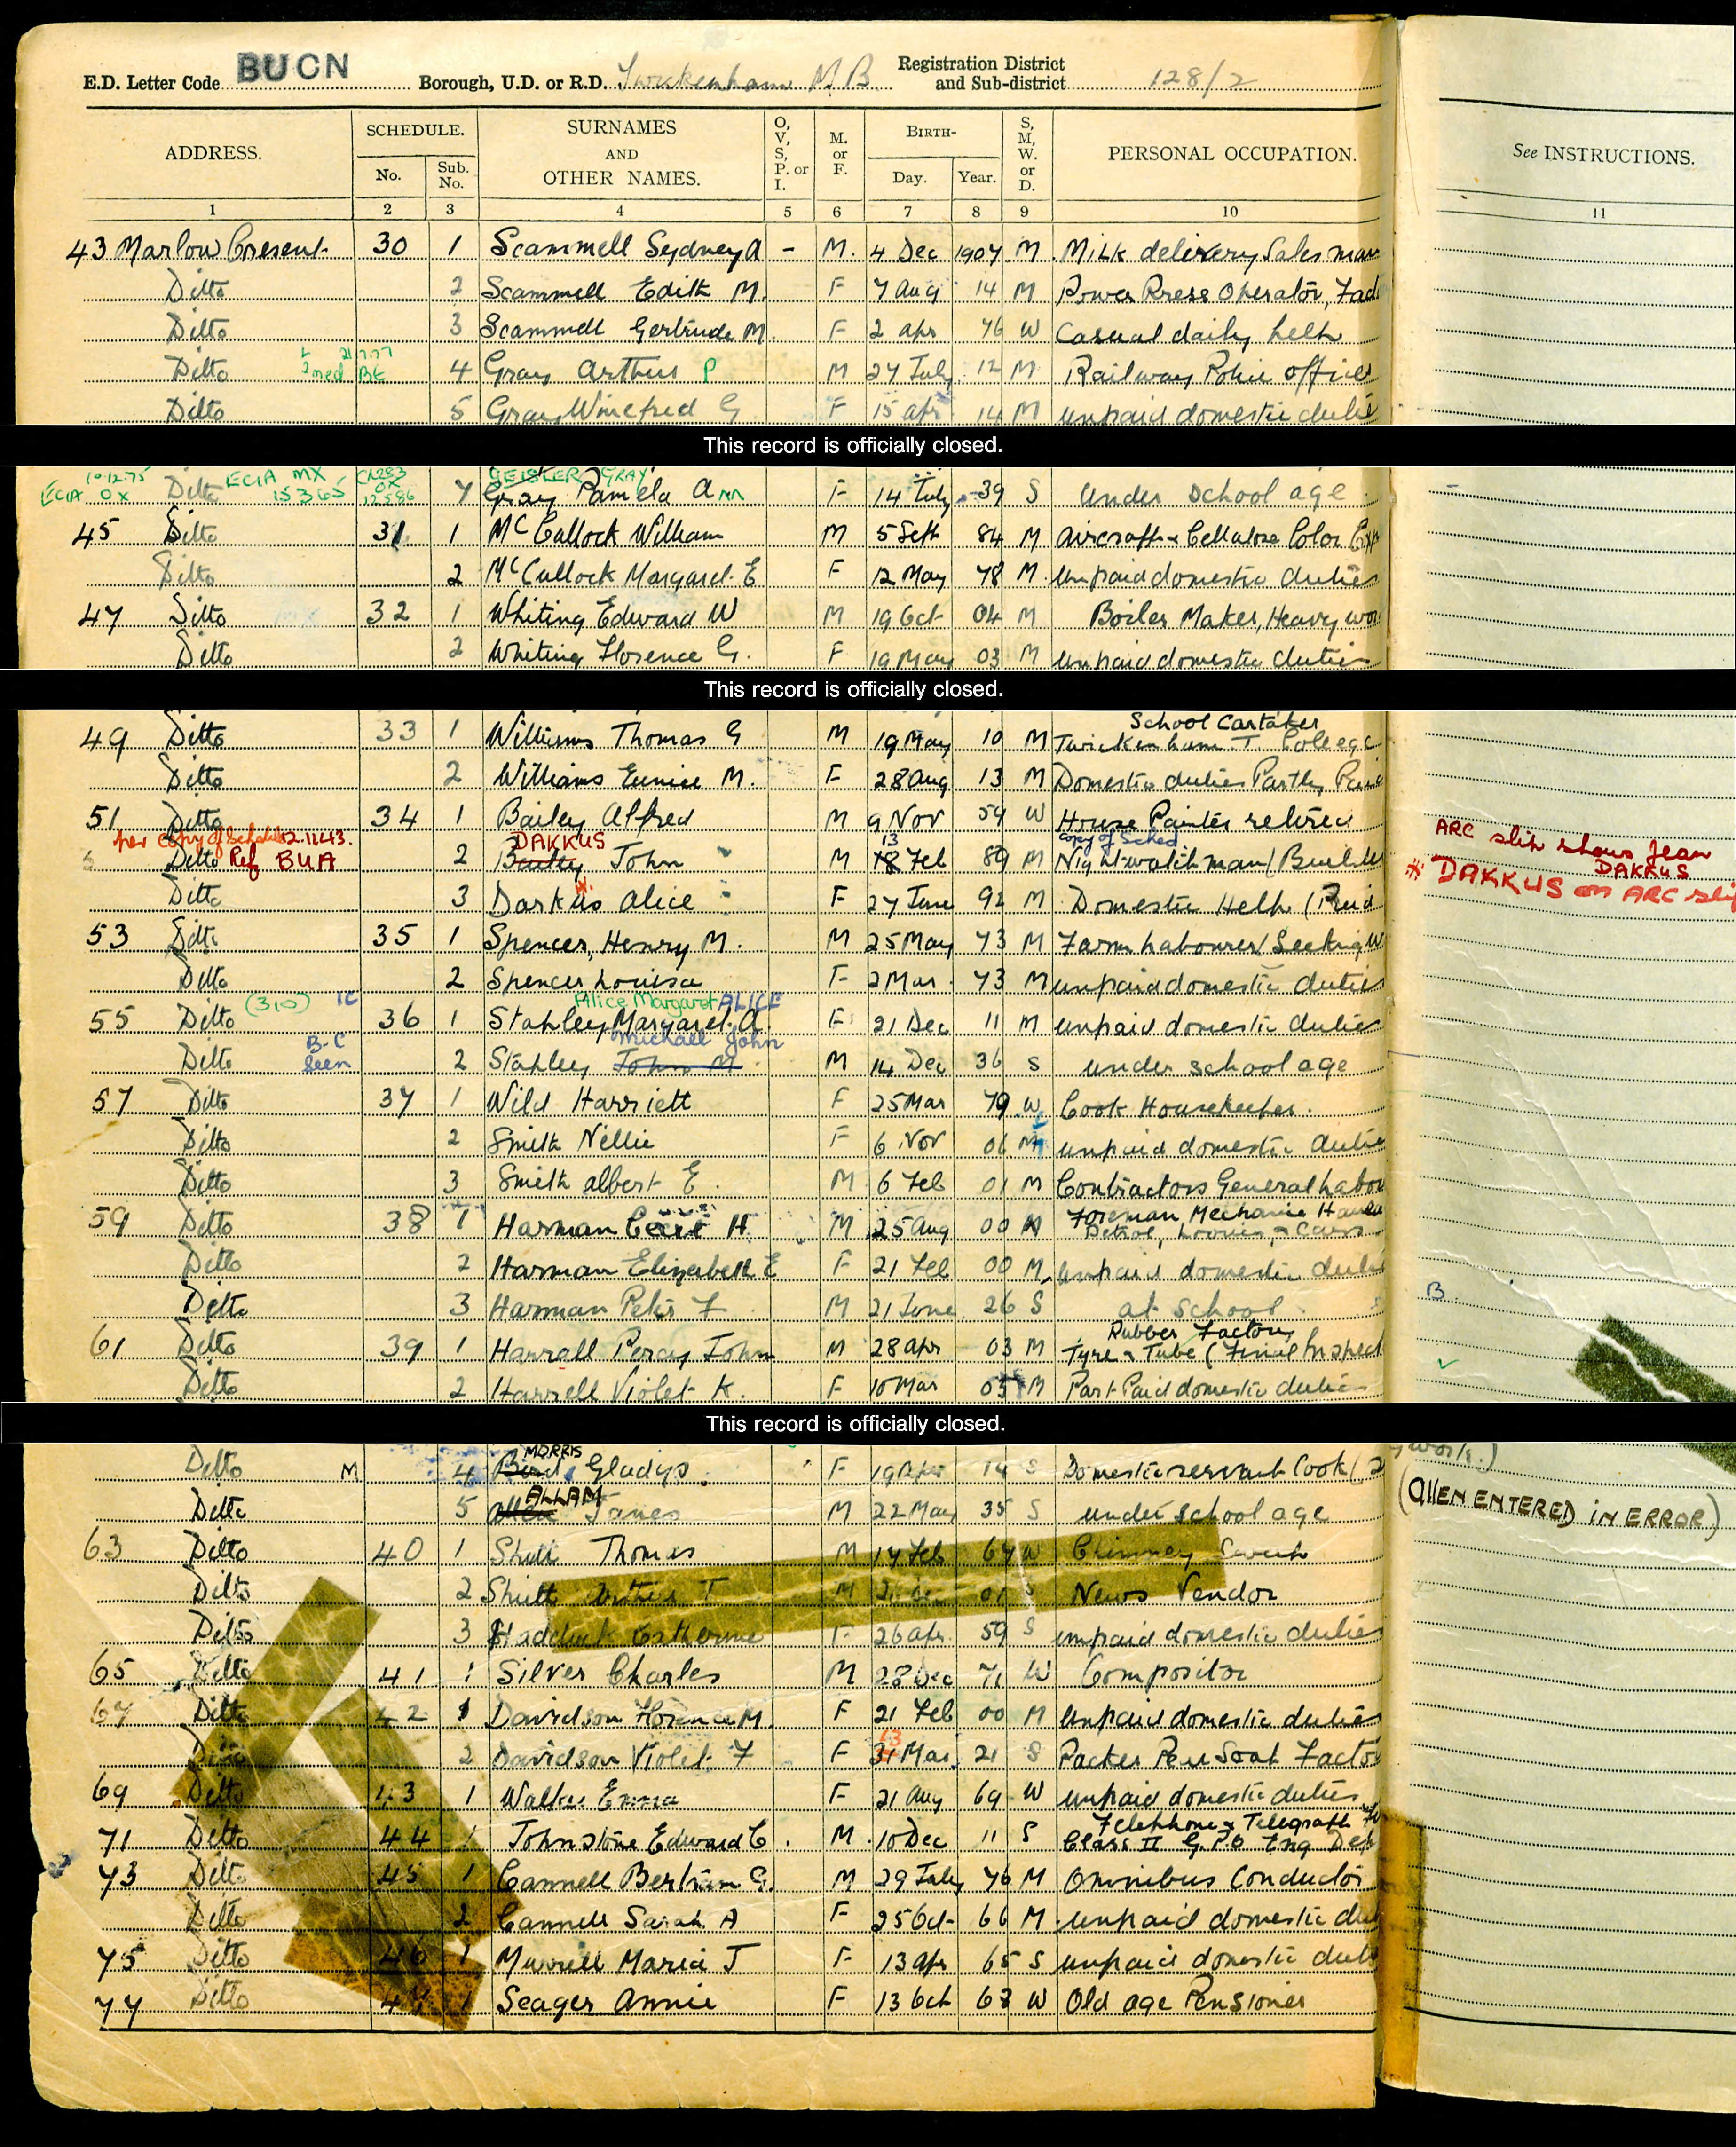 E.D. Letter Code BUCN Borough, U.D. or R.D. Twickenham M B Registration District and Sub-district 128/2
ADDRESS. SCHEDULE. No. Sub. No. SURNAMES AND OTHER NAMES. O, V, S, P. or I. M. or F. BIRTH- Day. Year. S, M, W. or D. PERSONAL OCCUPATION. See INSTRUCTIONS.
1 2 3 4 5 6 7 8 9 10 11
43 Marlow Cresent 30 1 Scammell Sydney A - M. 4 Dec 1907 M. Milk delivery Sales man
Ditto 2 Scammell Edith M. F 7 Aug 14 M Power Press Operator, Fact
Ditto 3 Scammell Gertrude M. F 2 Apr 76 W Casual daily help
Ditto BE 4 Gray Arthur P M 27 July 12 M Railway Police Officer
Ditto 5 Gray Winefred G F 15 Apr 14 M unpaid domestic dutie
This record is officially closed.
10.12.75 ECIA MX CR283
GEISLER GRAY
ECIA OX Ditto 15365 OX 12586 7 Gray Pamela A F 14 July 39 S Under School age
45 Ditto 31 1 McCullock William M 5 Sept 84 M Aircraft & Cellulose Color
Ditto 2 McCullock Margaret E F 12 May 78 M. Unpaid domestic duties
47 Ditto 32 1 Whiting Edward W M 19 Oct 04 M Boiler Maker, Heavy wor
Ditto 2 Whiting Florence G. F 19 May 03 M unpaid domestic duties
This record is officially closed.
School Cartaker
49 Ditto 33 1 Williams Thomas G M 19 May 10 M Twickenham T. College
Ditto 2 Williams Eunice M. F 28 Aug 13 M Domestic duties Partly Paid
51 Ditto 34 1 Bailey Alfred M 9 Nov 59 W House Painter retired
per copy of Schedule 12.11.43. DAKKUS 13 copy of Sched
Ditto Ref BUA 2 Bailey John M 18 Feb 89 M Night watchman/Builde
ARC slip shows Jean DAKKUS
* DAKKUS on ARC slip
Ditto 3 Darkus Alice F 27 June 92 M Domestic Help (Paid
53 Ditto 35 1 Spencer, Henry M. M 25 May 73 M Farm Labourer/Seeking W
Ditto 2 Spencer Louisa F 2 Mar 73 M unpaid domestic duties
(310) IC Alice Margaret ALICE
55 Ditto 36 1 Stapley Margaret A. F 21 Dec 11 M unpaid domestic duties
B-C Seen Michael John
Ditto 2 Stapley John M M 14 Dec 36 S under school age
57 Ditto 37 1 Wild Harriett F 25 Mar 79 W Cook Housekeeper.
Ditto 2 Smith Nellie F 6 Nov 06 M unpaid domestic dutie
Ditto 3 Smith Albert E. M 6 Feb 01 M Contractors General Labou
Foreman Mechanic
59 Ditto 38 1 Harman Cecil H. M 25 Aug 00 M Petrol, Lorries, & Cars
Ditto 2 Harman Elizabeth E F 21 Feb 00 M. unpaid domestic dutie
Ditto 3 Harman Peter F M 21 June 26 S at School B.
Rubber Factory
61 Ditto 39 1 Harrall Percy John M 28 Apr 03 M Tyre & Tube (Final Inspect
Ditto 2 Harrell Violet K. F 10 Mar 05 M Part Paid domestic duties
This record is officially closed.
MORRIS
Ditto M 4 Bird, Gladys F 19 Apr 14 S Domestic servant Cook
ALLAM (ALLEN ENTERED IN ERROR)
Ditto 5 Allen James M 22 May 35 S under school age
63 Ditto 40 1 Shutt Thomas M 17 Feb 67 W Chimney Sweep
Ditto 2 Shutt Arthur T M 01 S News Vendor
Ditto 3 Catherine F 26 Apr. 59 S unpaid domestic duties
65 Ditto 41 1 Silver Charles M 28 Dec 71 W Compositor
67 Ditto 42 1 Davidson Florence M. F 21 Feb 00 M unpaid domestic duties
13
Ditto 2 Davidson Violet F F 31 Mar. 21 S Packer Pear Soap Facto
69 Ditto 43 1 Walker Emma F 21 Aug 69 W unpaid domestic duties
Telephone & Telegraph
71 Ditto 44 1 Johnstone Edward C. M. 10 Dec 11 S Class II G.P.O Eng Dep
73 Ditto 45 1 Cannell Bertram G. M 29 July 76 M Omnibus Conductor
Ditto 2 Cannell Sarah A F 25 Oct 66 M unpaid domestic dut
75 Ditto 46 1 Murrell Maria J F 13 Apr 65 S unpaid domestic duti
77 Ditto 47 1 Seager Annie F 13 Oct 63 W Old age Pensioner